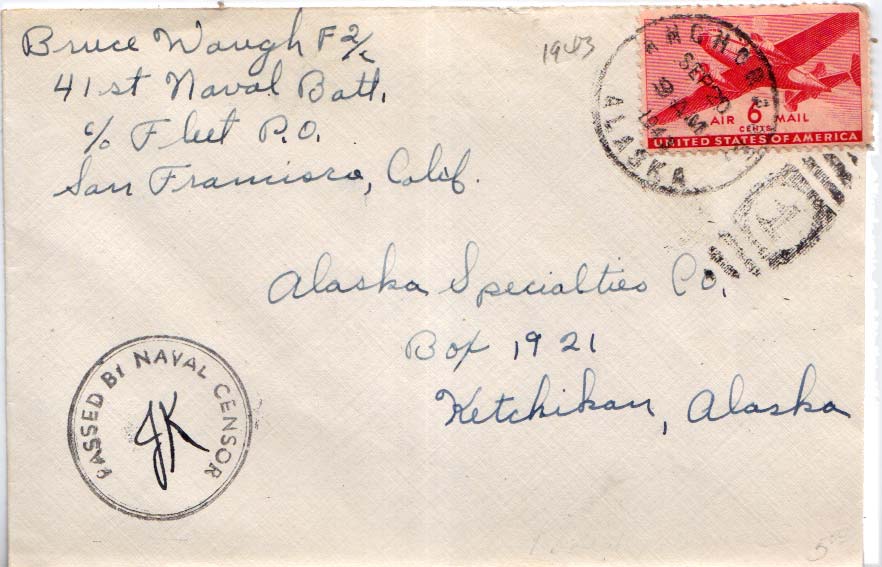 Bruce Waugh F 2/c
41st Naval Batt.
c/o Fleet P.O.
San Francisco, Calif.
1943
ANCHORAGE
SEP 20
9 AM
1943
ALASKA
AIR 6 MAIL
CENTS
UNITED STATES OF AMERICA
Alaska Specialties Co.
Box 1921
Ketchikan, Alaska
PASSED BY NAVAL CENSOR
JK